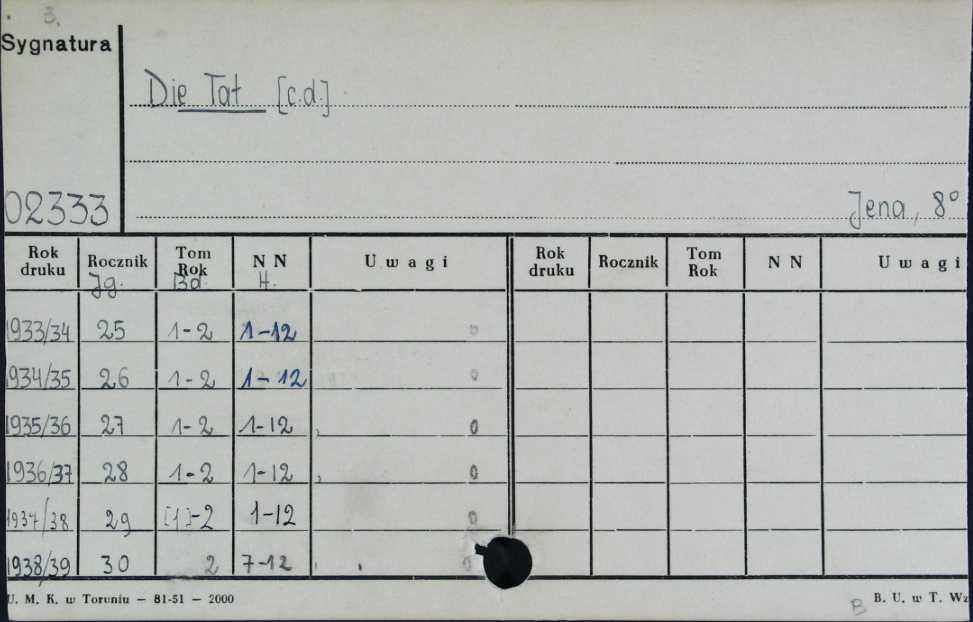 3.
Sygnatura
Die Tat [c.d.]
02333
Jena, 8°
Rok druku Rocznik Tom Rok N N U w a g i Rok druku Rocznik Tom Rok N N U w a g i
Jg. Bd. H.
1933/34 25 1-2 1-12 0
1934/35 26 1-2 1-12 0
1935/36 27 1-2 1-12 0
1936/37 28 1-2 1-12 0
1937/38 29 [1]-2 1-12 0
1938/39 30 2 7-12 0
U. M. K. w Toruniu — 81-51 — 2000
B
B. U. w T. Wz